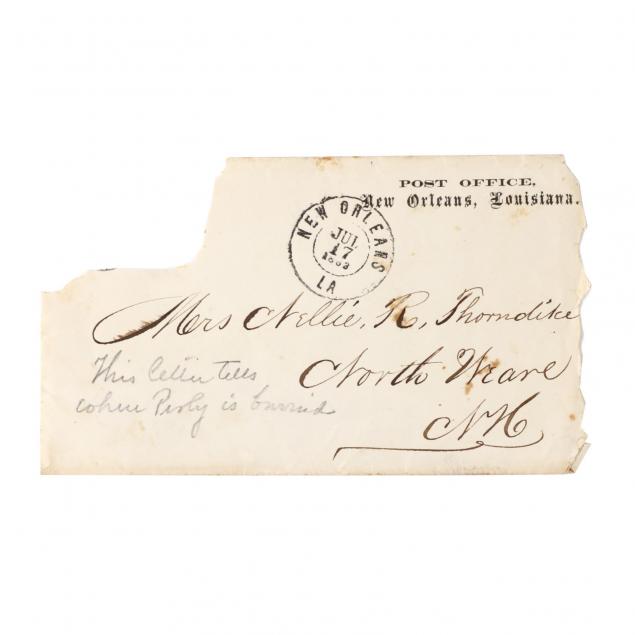 POST OFFICE,
New Orleans, Louisiana.
NEW ORLEANS
JUL
17
1863
LA
Mrs Nellie, R, Thorndike
North Weare
NH
This letter tells
where Perly is burried